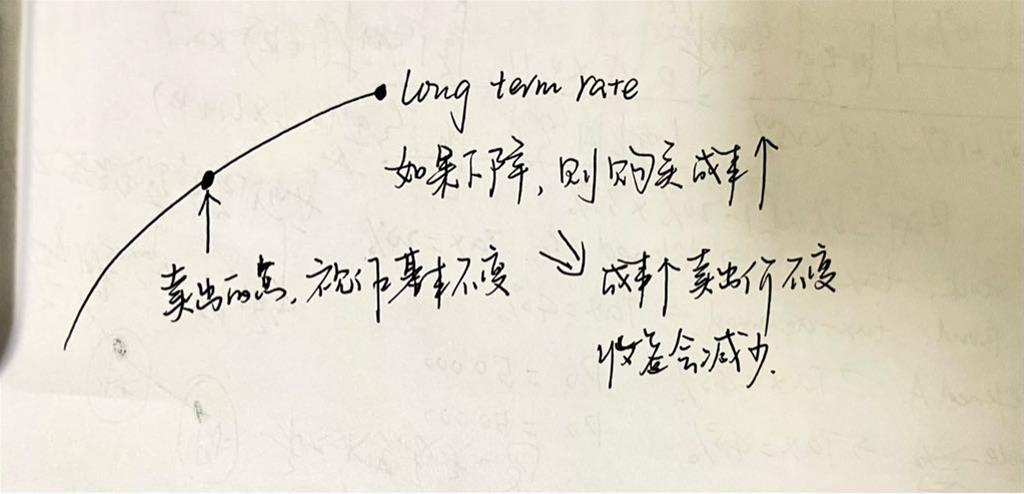 long term rate
如果下降,则购买成本↑
卖出的点,视作基本不变
成本↑ 卖出价不变
收益会减少.